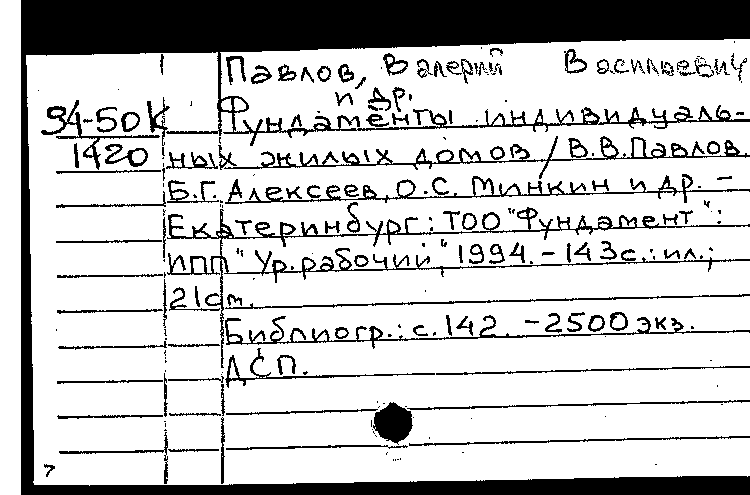 Павлов, Валерий Васильевич
и др.
94-50К Фундаменты индивидуаль-
1420 ных жилых домов / В.В.Павлов
Б.Г. Алексеев, О.С. Минкин и др. -
Екатеринбург: ТОО "Фундамент":
ИПП "Ур.рабочий", 1994. - 143с.: ил.;
21см.
Библиогр.: с. 142. - 2500 экз.
ДСП.
7